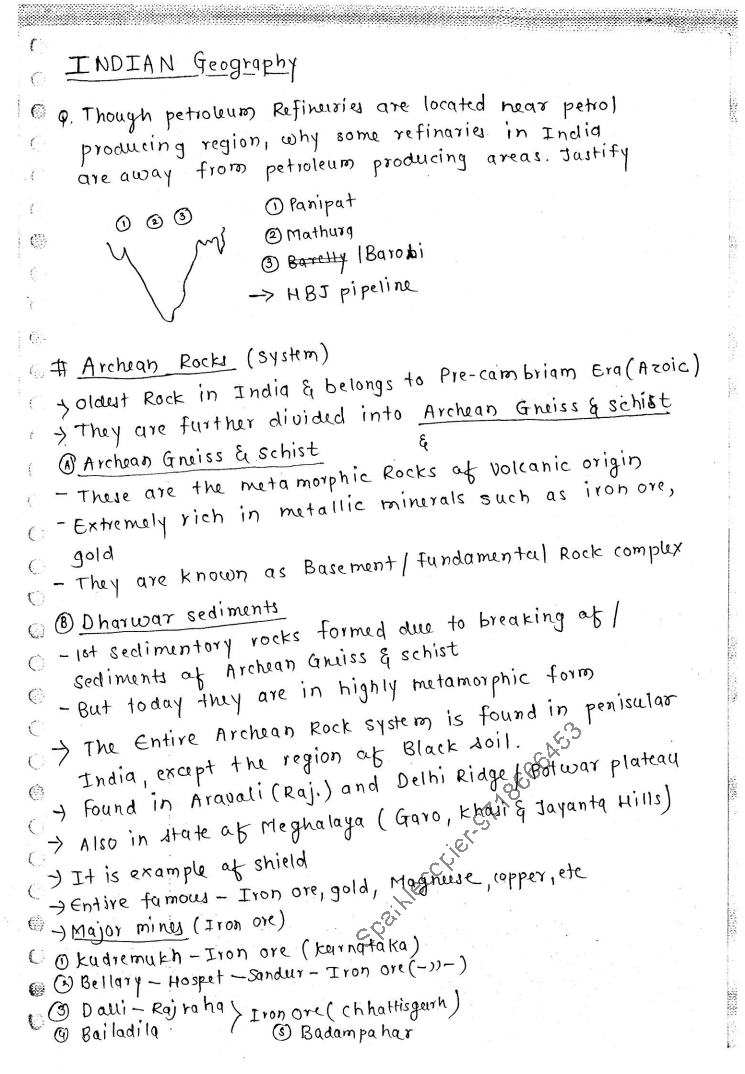 INDIAN Geography
Q. Though petroleum Refineiries are located near petrol
producing region, why some refinaries in India
are away from petroleum producing areas. Justify
① ② ③
① Panipat
② Mathura
③ Barelly / Barobi
→ HBJ pipeline
# Archean Rocks (System)
→ Oldest Rock in India & belongs to Pre-cambriam Era (Azoic)
→ They are further divided into Archean Gneiss & schist
&
Ⓐ Archean Gneiss & schist
- These are the metamorphic Rocks of volcanic origin
- Extremely rich in metallic minerals such as iron ore,
gold
- They are known as Basement / fundamental Rock complex
Ⓑ Dharwar sediments
- 1st sedimentory rocks formed due to breaking of /
sediments of Archean Gneiss & schist
- But today they are in highly metamorphic form
→ The Entire Archean Rock system is found in penisular
India, except the region of Black soil.
→ found in Aravali (Raj.) and Delhi Ridge / Potwar plateau
→ Also in state of Meghalaya ( Garo, Khasi & Jayanta Hills)
→ It is example of shield
→ Entire famous - Iron ore, gold, Magneese, copper, etc
→ Major mines (Iron ore)
① Kudremukh - Iron ore (Karnataka)
② Bellary - Hospet - Sandur - Iron ore (-))-)
③ Dalli - Rajraha } Iron ore ( Chhattisgarh)
④ Bailadila
⑤ Badampahar